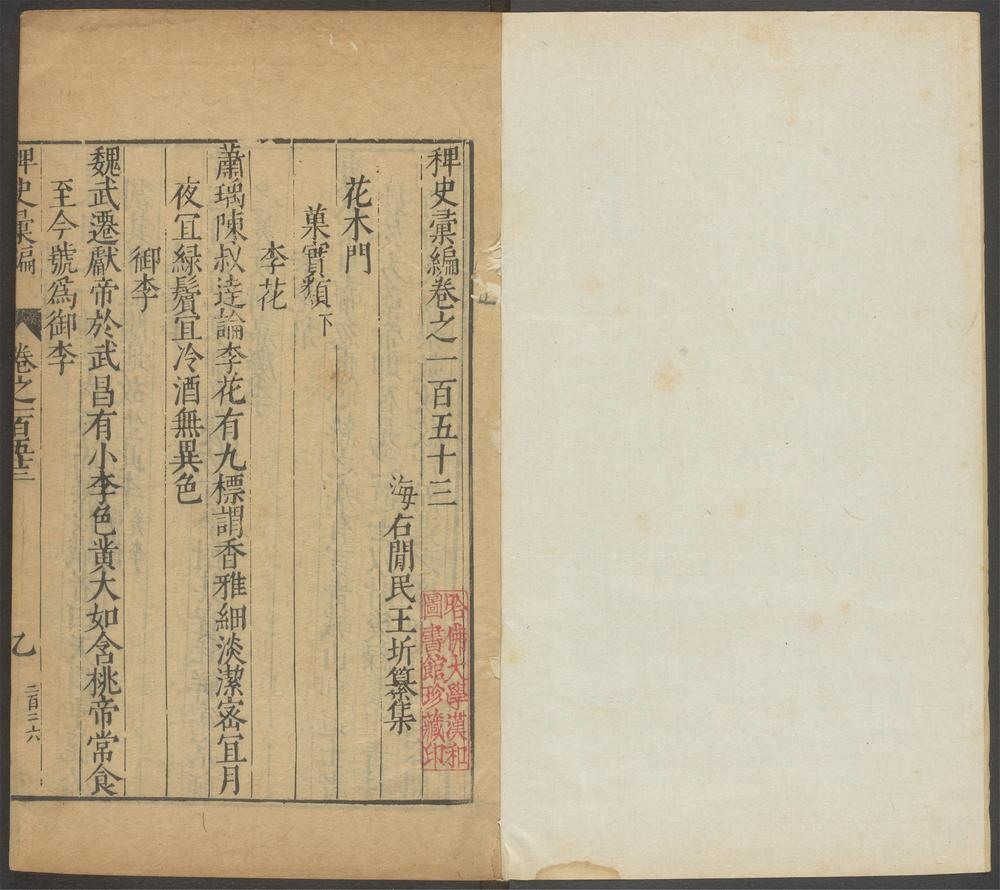 稗史彙編卷之一百五十三
海右閒民王圻纂集
花木門
菓實類下
李花
蕭瑀陳叔逹論李花有九標謂香雅細淡潔宻宜月
夜宜綠鬢宜冷酒無異色
御李
魏武遷獻帝於武昌有小李色黃大如含桃帝常食
至今號爲御李
稗史彙編 卷之一百五十三 乙 二百二六
哈佛大學漢和
圖書館珍藏印